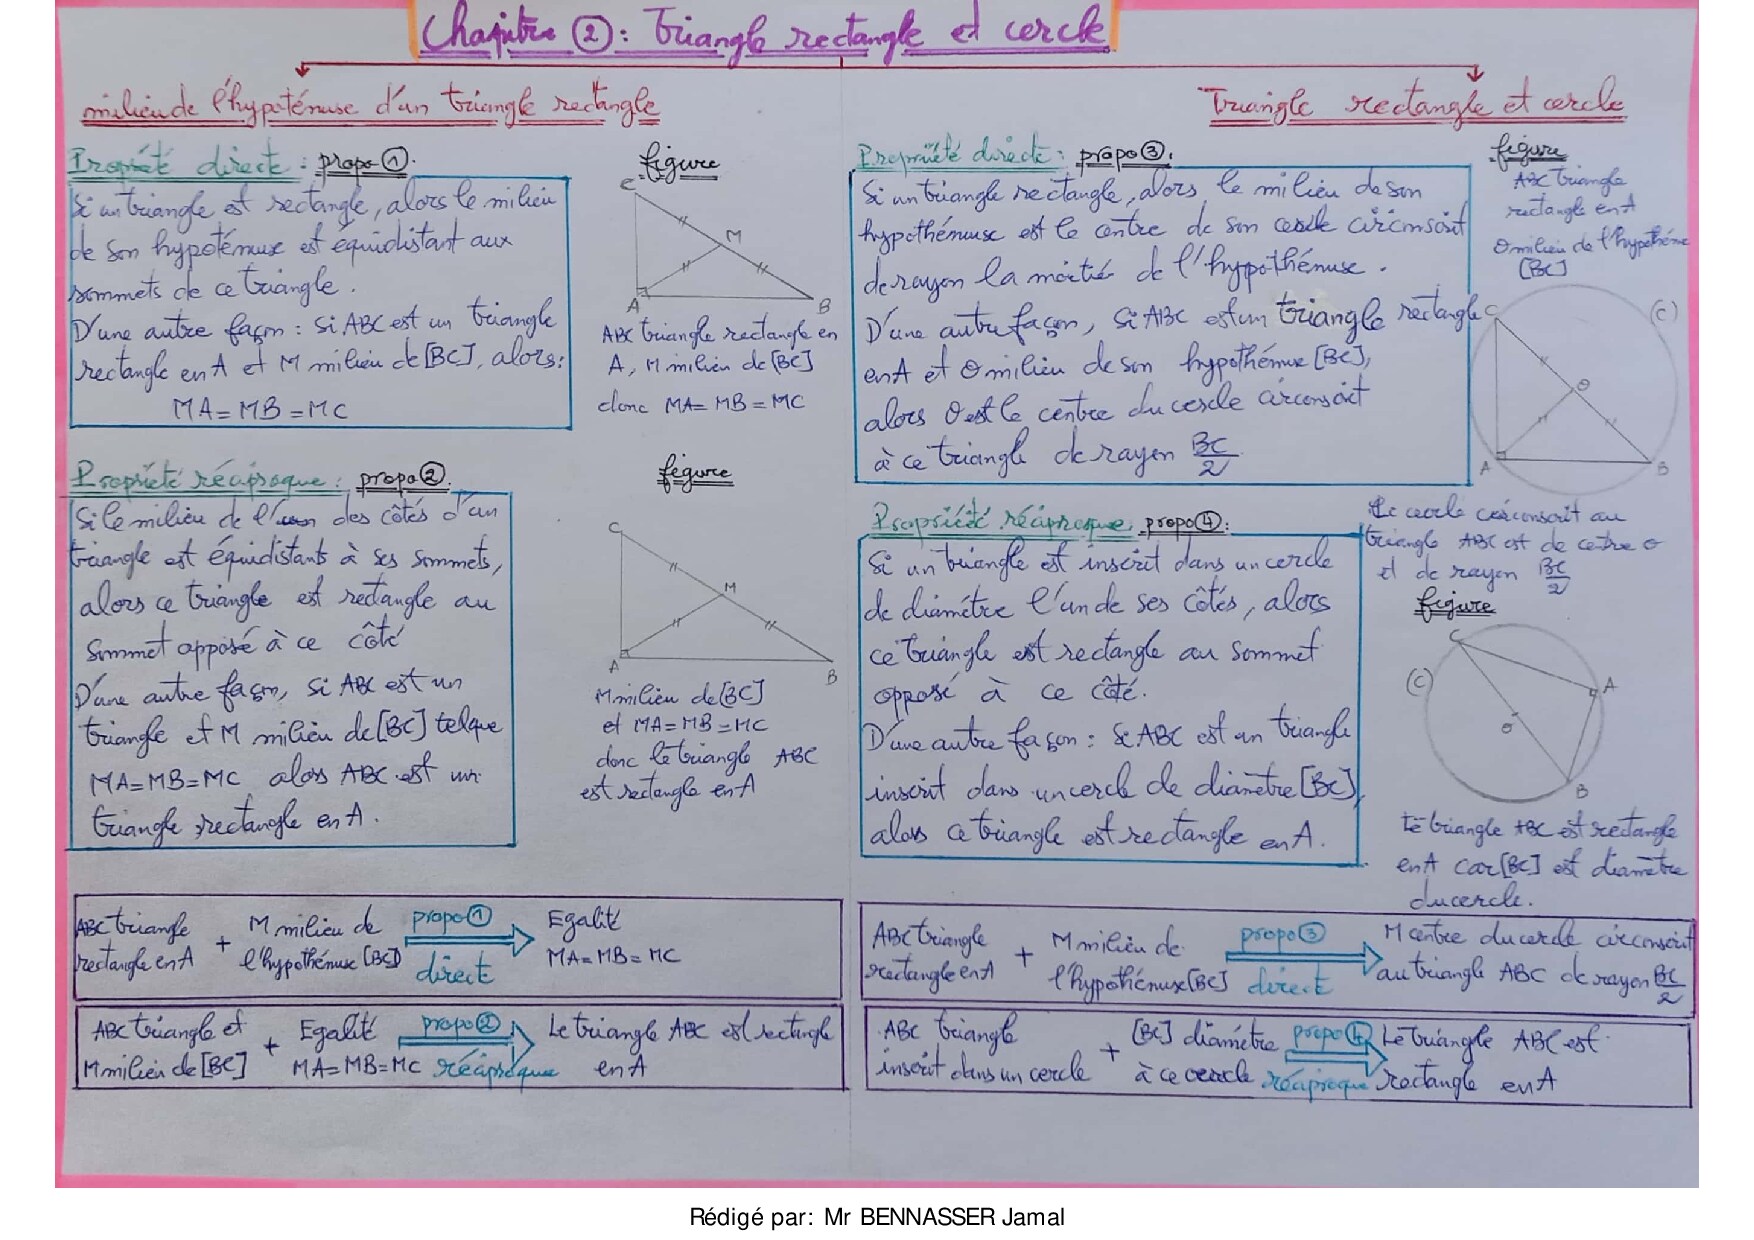 Chapitre ②: Triangle rectangle et cercle
milieu de l'hypoténuse d'un triangle rectangle
Propriété direct : propo ①.
Si un triangle est rectangle, alors le milieu
de son hypoténuse est équidistant aux
sommets de ce triangle.
D'une autre façon : si ABC est un triangle
rectangle en A et M milieu de [BC], alors:
MA = MB = MC
figure
C
M
A
B
ABC triangle rectangle en
A, M milieu de [BC]
donc MA = MB = MC
Propriété réciproque : propo ②.
Si le milieu de l'un des côtés d'un
triangle est équidistants à ses sommets,
alors ce triangle est rectangle au
sommet opposé à ce côté
D'une autre façon, si ABC est un
triangle et M milieu de [BC] telque
MA=MB=MC alors ABC est un
triangle rectangle en A.
figure
C
M
A
B
M milieu de [BC]
et MA=MB=MC
donc le triangle ABC
est rectangle en A
ABC triangle
rectangle en A
+
M milieu de
l'hypothénuse [BC]
propo ①
direct
Egalité
MA=MB=MC
ABC triangle et
M milieu de [BC]
+
Egalité
MA=MB=MC
propo ②
réciproque
Le triangle ABC est rectangle
en A
Triangle rectangle et cercle
Propriété directe : propo ③.
Si un triangle rectangle, alors le milieu de son
hypothénuse est le centre de son cercle circonscrit
de rayon la moitié de l'hypothénuse.
D'une autre façon, si ABC est un triangle rectangle
en A et O milieu de son hypothénuse [BC],
alors O est le centre du cercle circonscrit
à ce triangle de rayon BC/2
figure
ABC triangle
rectangle en A
O milieu de l'hypothénuse
[BC]
C
(C)
O
A
B
Le cercle circonscrit au
triangle ABC est de centre O
et de rayon BC/2
Propriété réciproque propo ④:
Si un triangle est inscrit dans un cercle
de diamétre l'un de ses côtés, alors
ce triangle est rectangle au sommet
opposé à ce côté.
D'une autre façon : Si ABC est un triangle
inscrit dans un cercle de diamètre [BC],
alors ce triangle est rectangle en A.
figure
C
(C)
A
O
B
Le triangle ABC est rectangle
en A car [BC] est diamètre
du cercle.
ABC triangle
rectangle en A
+
M milieu de
l'hypothénuse [BC]
propo ③
direct
M centre du cercle circonscrit
au triangle ABC de rayon BC/2
ABC triangle
inscrit dans un cercle
+
[BC] diamétre
à ce cercle
propo ④
réciproque
Le triangle ABC est
rectangle en A
Rédigé par: Mr BENNASSER Jamal